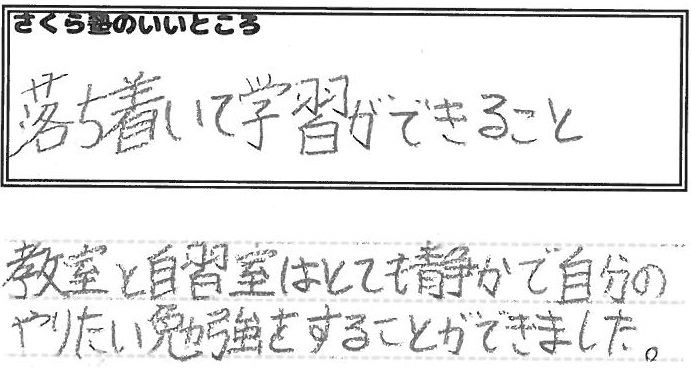 さくら塾のいいところ
落ち着いて学習ができること
教室と自習室はとても静かで自分の
やりたい勉強をすることができました。